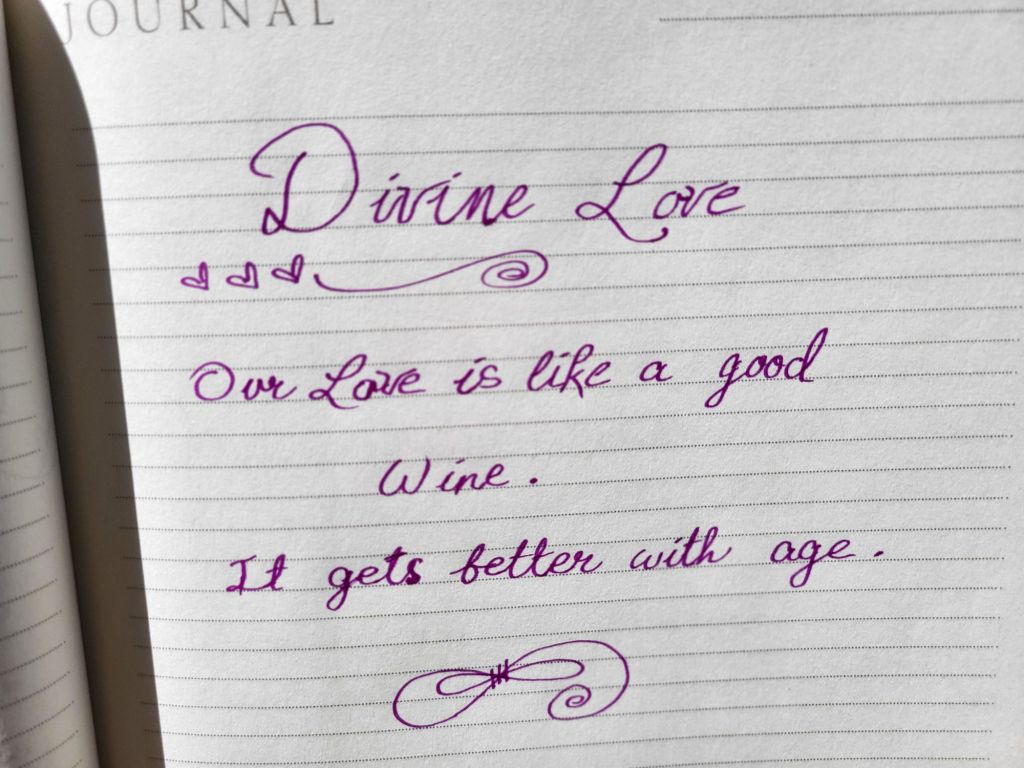 JOURNAL
Divine Love
Our Love is like a good
Wine.
It gets better with age.